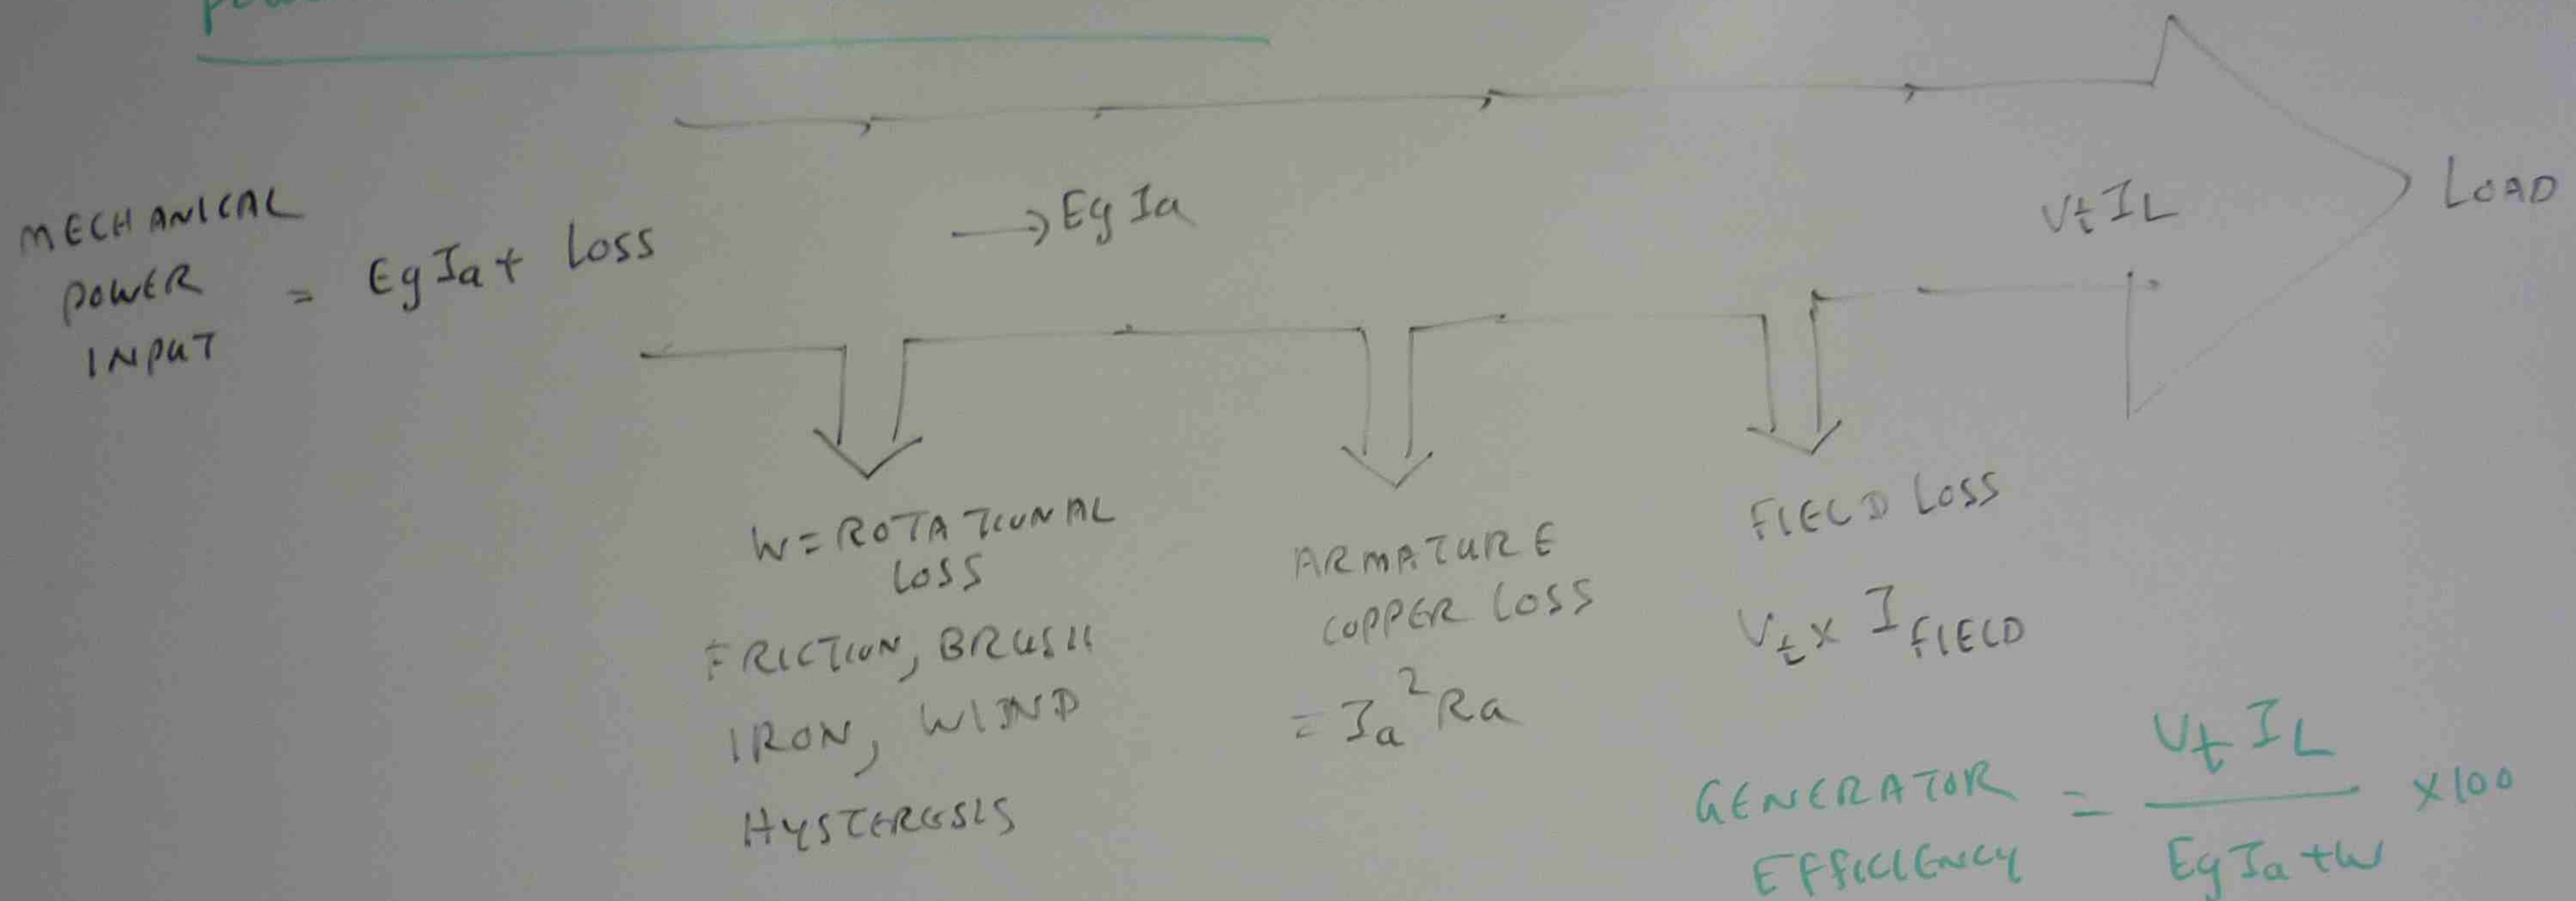 MECHANICAL
POWER
INPUT
= EgIa + LOSS
→ Eg Ia
Vt IL
LOAD
W = ROTATIONAL
LOSS
FRICTION, BRUSH
IRON, WIND
HYSTERESIS
ARMATURE
COPPER LOSS
= Ia² Ra
FIELD LOSS
Vt x I FIELD
GENERATOR
EFFICIENCY
= Vt IL / EgIa + W x100